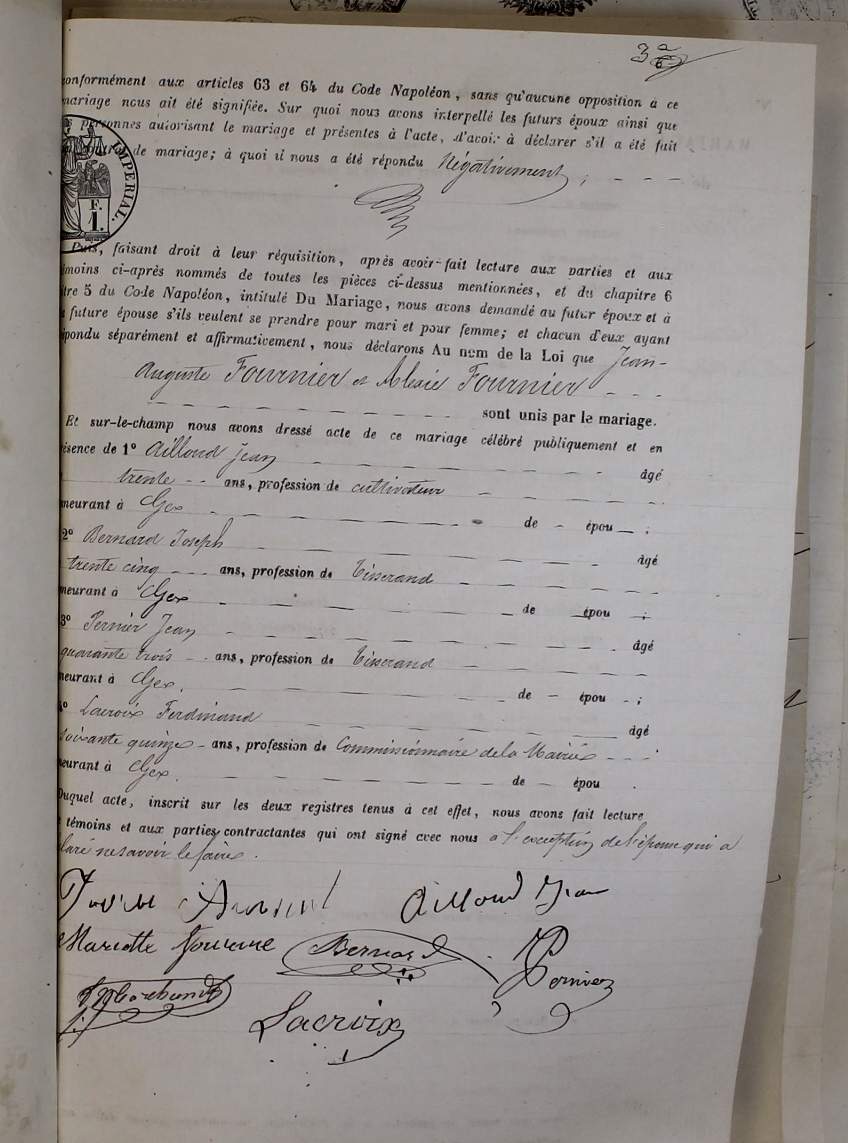 3
onformément aux articles 63 et 64 du Code Napoléon, sans qu'aucune opposition à ce
mariage nous ait été signifiée. Sur quoi nous avons interpellé les futurs époux ainsi que
personnes autorisant le mariage et présentes à l'acte, d'avoir à déclarer s'il a été fait
de mariage; à quoi il nous a été répondu Négativement,
IMPERIAL.
F.
1.
Puis, faisant droit à leur réquisition, après avoir fait lecture aux parties et aux
émoins ci-après nommés de toutes les pièces ci-dessus mentionnées, et du chapitre 6
itre 5 du Code Napoléon, intitulé Du Mariage, nous avons demandé au futur époux et à
future épouse s'ils veulent se prendre pour mari et pour femme; et chacun d'eux ayant
épondu séparément et affirmativement, nous déclarons Au nom de la Loi que Jean-
Auguste Fournier et Alexie Fournier
sont unis par le mariage.
Et sur-le-champ nous avons dressé acte de ce mariage célébré publiquement et en
ésence de 1° Ailloud Jean âgé
trente ans, profession de cultivateur
meurant à Gex de épou ;
2° Bernard Joseph âgé
trente cinq ans, profession de Tisserand
meurant à Gex de épou ;
3° Pernier Jean âgé
quarante trois ans, profession de Tisserand
meurant à Gex. de épou ;
4° Lacroix Ferdinand âgé
soixante quinze ans, profession de Commissionnaire de la Mairie
meurant à Gex. de épou
Duquel acte, inscrit sur les deux registres tenus à cet effet, nous avons fait lecture
témoins et aux parties contractantes qui ont signé avec nous à l'exception de l'épouse qui a
claré ne savoir le faire.
Ailloud Jean
Mariette Bernard Pernier
Lacroix